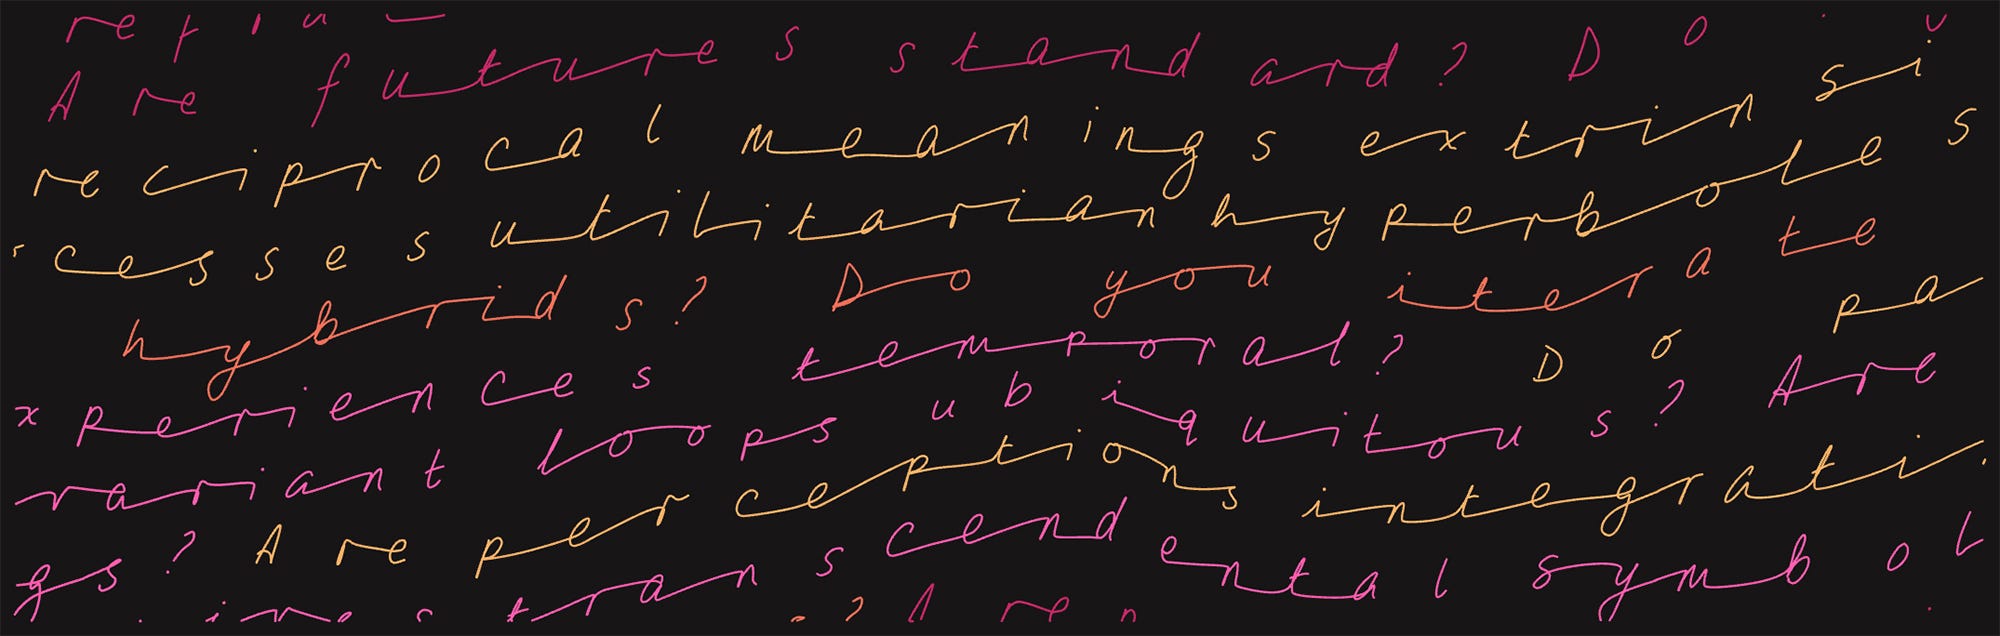 Are futures standard? Do
reciprocal meanings extrinsi
cesses utilitarian hyperboles
hybrids? Do you iterate
xperiences temporal? Do pa
variant loops ubiquitous? Are
gs? Are perceptions integrati
transcendental symbol